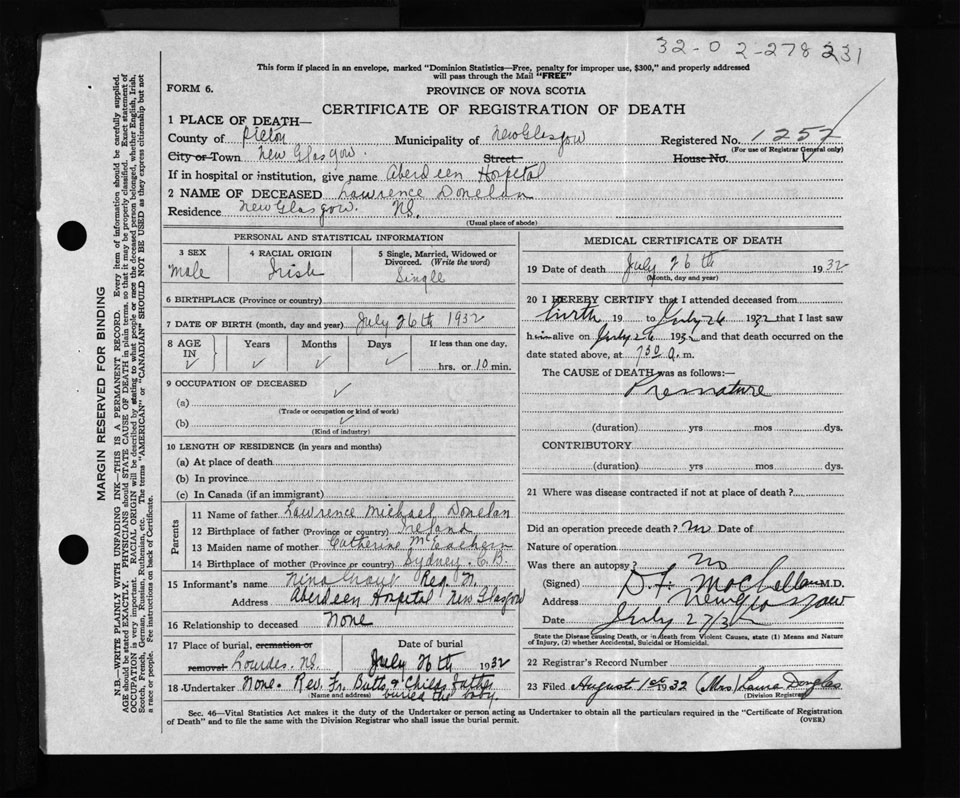 32-0 2-278 231
This form if placed in an envelope, marked "Dominion Statistics—Free, penalty for improper use, $300," and properly addressed
will pass through the Mail "FREE"
FORM 6.
PROVINCE OF NOVA SCOTIA
CERTIFICATE OF REGISTRATION OF DEATH
1 PLACE OF DEATH—
County of Pictou Municipality of New Glasgow Registered No. 1257
(For use of Registrar General only)
City or Town New Glasgow. Street House No.
If in hospital or institution, give name Aberdeen Hospital
2 NAME OF DECEASED Lawrence Donelan
Residence New Glasgow. NS.
(Usual place of abode)
PERSONAL AND STATISTICAL INFORMATION
3 SEX
Male
4 RACIAL ORIGIN
Irish
5 Single, Married, Widowed or
Divorced. (Write the word)
Single
6 BIRTHPLACE (Province or country)
7 DATE OF BIRTH (month, day and year) July 26th 1932
8 AGE IN Years Months Days If less than one day.
hrs. or 10 min.
9 OCCUPATION OF DECEASED
(a)
(Trade or occupation or kind of work)
(b)
(Kind of industry)
10 LENGTH OF RESIDENCE (in years and months)
(a) At place of death
(b) In province
(c) In Canada (if an immigrant)
Parents
11 Name of father Lawrence Michael Donelan
12 Birthplace of father (Province or country) Ireland
13 Maiden name of mother Catherine McEachern
14 Birthplace of mother (Province or country) Sydney. C.B.
15 Informant's name Nina Grant Reg. N.
Address Aberdeen Hospital New Glasgow
16 Relationship to deceased None
17 Place of burial, cremation or
removal. Lourdes. NS.
Date of burial
July 26th 1932
18 Undertaker None. Rev. Fr. Butts & Childs father
buried the body
MEDICAL CERTIFICATE OF DEATH
19 Date of death July 26th 1932
(Month, day and year)
20 I HEREBY CERTIFY that I attended deceased from
birth 19 to July 26 1932 that I last saw
him alive on July 26 1932 and that death occurred on the
date stated above, at 7 30 a.m.
The CAUSE of DEATH was as follows:—
Premature
(duration) yrs mos dys.
CONTRIBUTORY
(duration) yrs mos dys.
21 Where was disease contracted if not at place of death?
Did an operation precede death? no Date of
Nature of operation
Was there an autopsy? no
(Signed) M.D.
Address New Glasgow
Date July 27/32
State the Disease causing Death, or in death from Violent Causes, state (1) Means and Nature
of Injury, (2) whether Accidental, Suicidal or Homicidal.
22 Registrar's Record Number
23 Filed August 1st 1932 (Mrs) Laura Douglas
(Division Registrar)
Sec. 46—Vital Statistics Act makes it the duty of the Undertaker or person acting as Undertaker to obtain all the particulars required in the "Certificate of Registration
of Death" and to file the same with the Division Registrar who shall issue the burial permit.
(OVER)
MARGIN RESERVED FOR BINDING
N.B.—WRITE PLAINLY WITH UNFADING INK—THIS IS A PERMANENT RECORD. Every item of information should be carefully supplied.
AGE should be stated EXACTLY. PHYSICIANS should STATE CAUSE OF DEATH in plain terms, so that it may be properly classified. Exact statement of
OCCUPATION is very important. RACIAL ORIGIN will be described by stating to what people or race the deceased person belonged, whether English, Irish,
Scotch, French, German, Russian, Ruthenian, etc. The terms "AMERICAN" or "CANADIAN" SHOULD NOT BE USED as they express citizenship but not
a race or people. See instructions on back of Certificate.